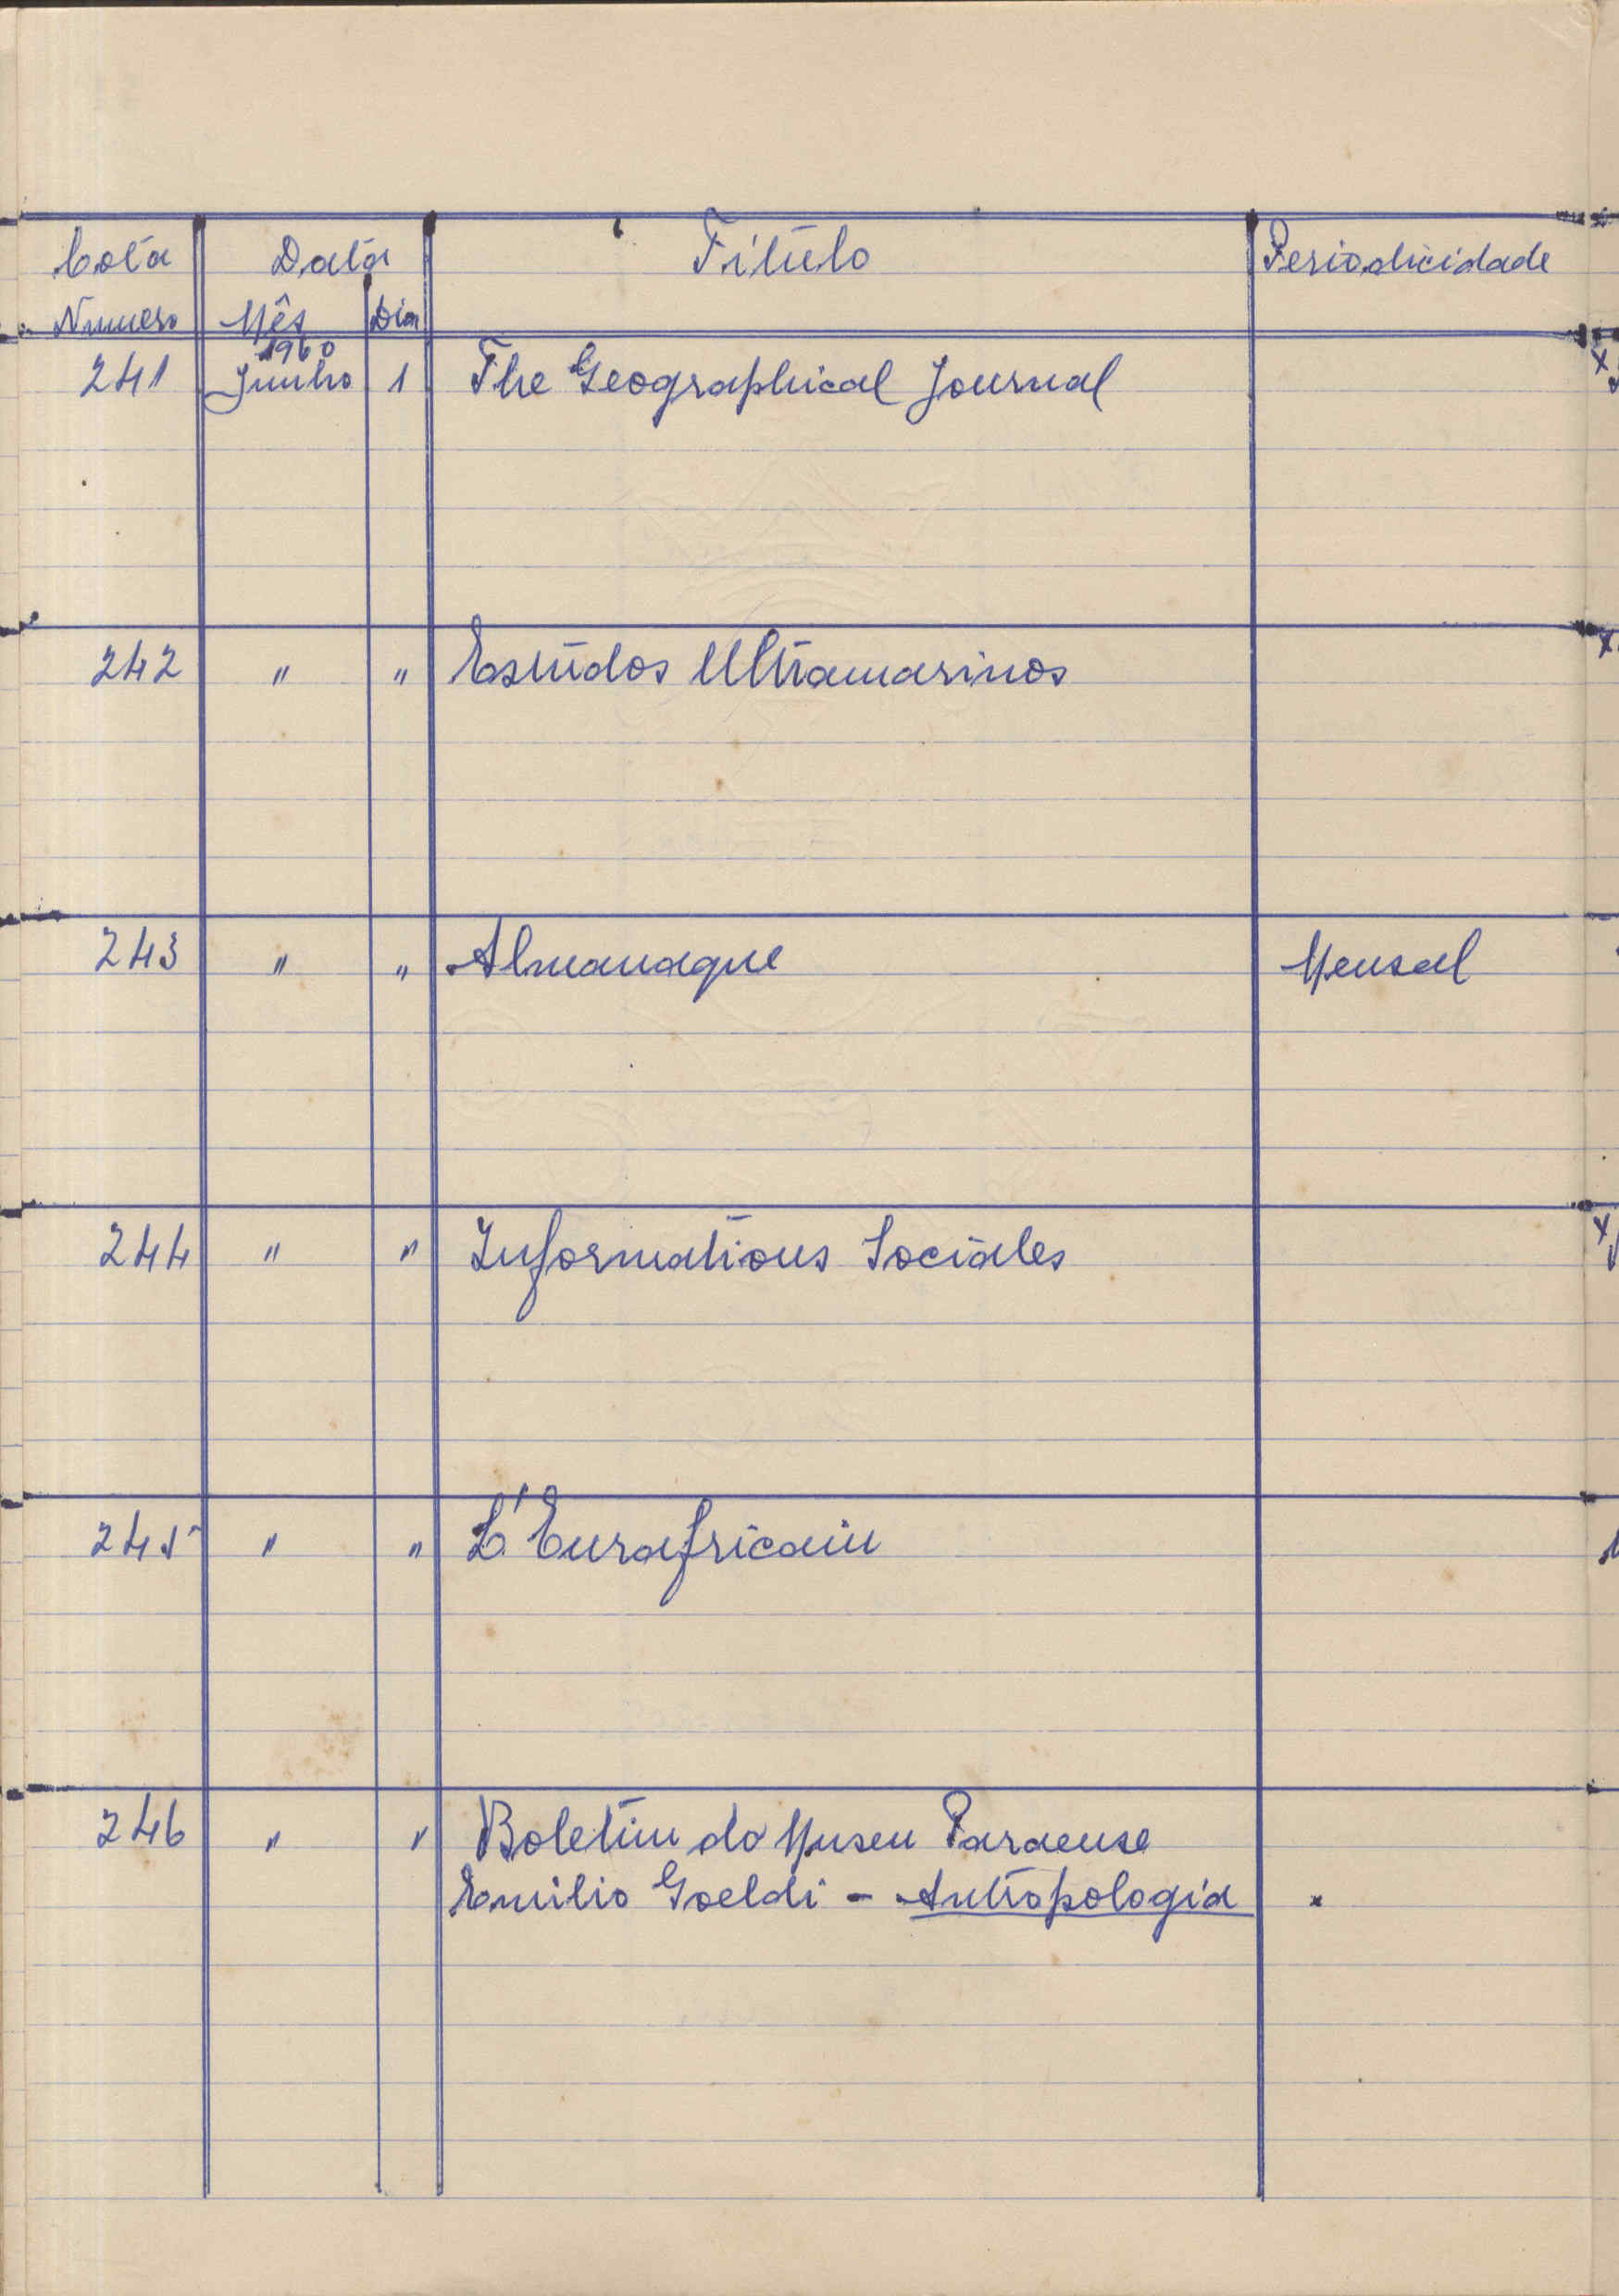 Cota Data Título Periodicidade
Numero Mês Dia
1960
241 Junho 1 The Geographical Journal
242 " " Estudos Ultramarinos
243 " " Almanaque Mensal
244 " " Informations Sociales
245 " " L'Eurafricain
246 " " Boletim do Museu Paraense
Emilio Goeldi - Antropologia